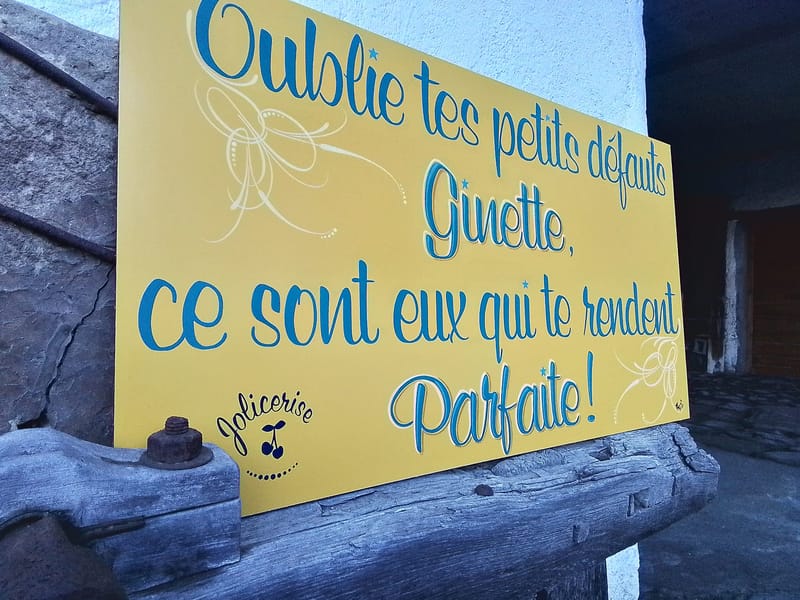 Oublie tes petits défauts
Ginette,
ce sont eux qui te rendent
Parfaite !
Jolicerise